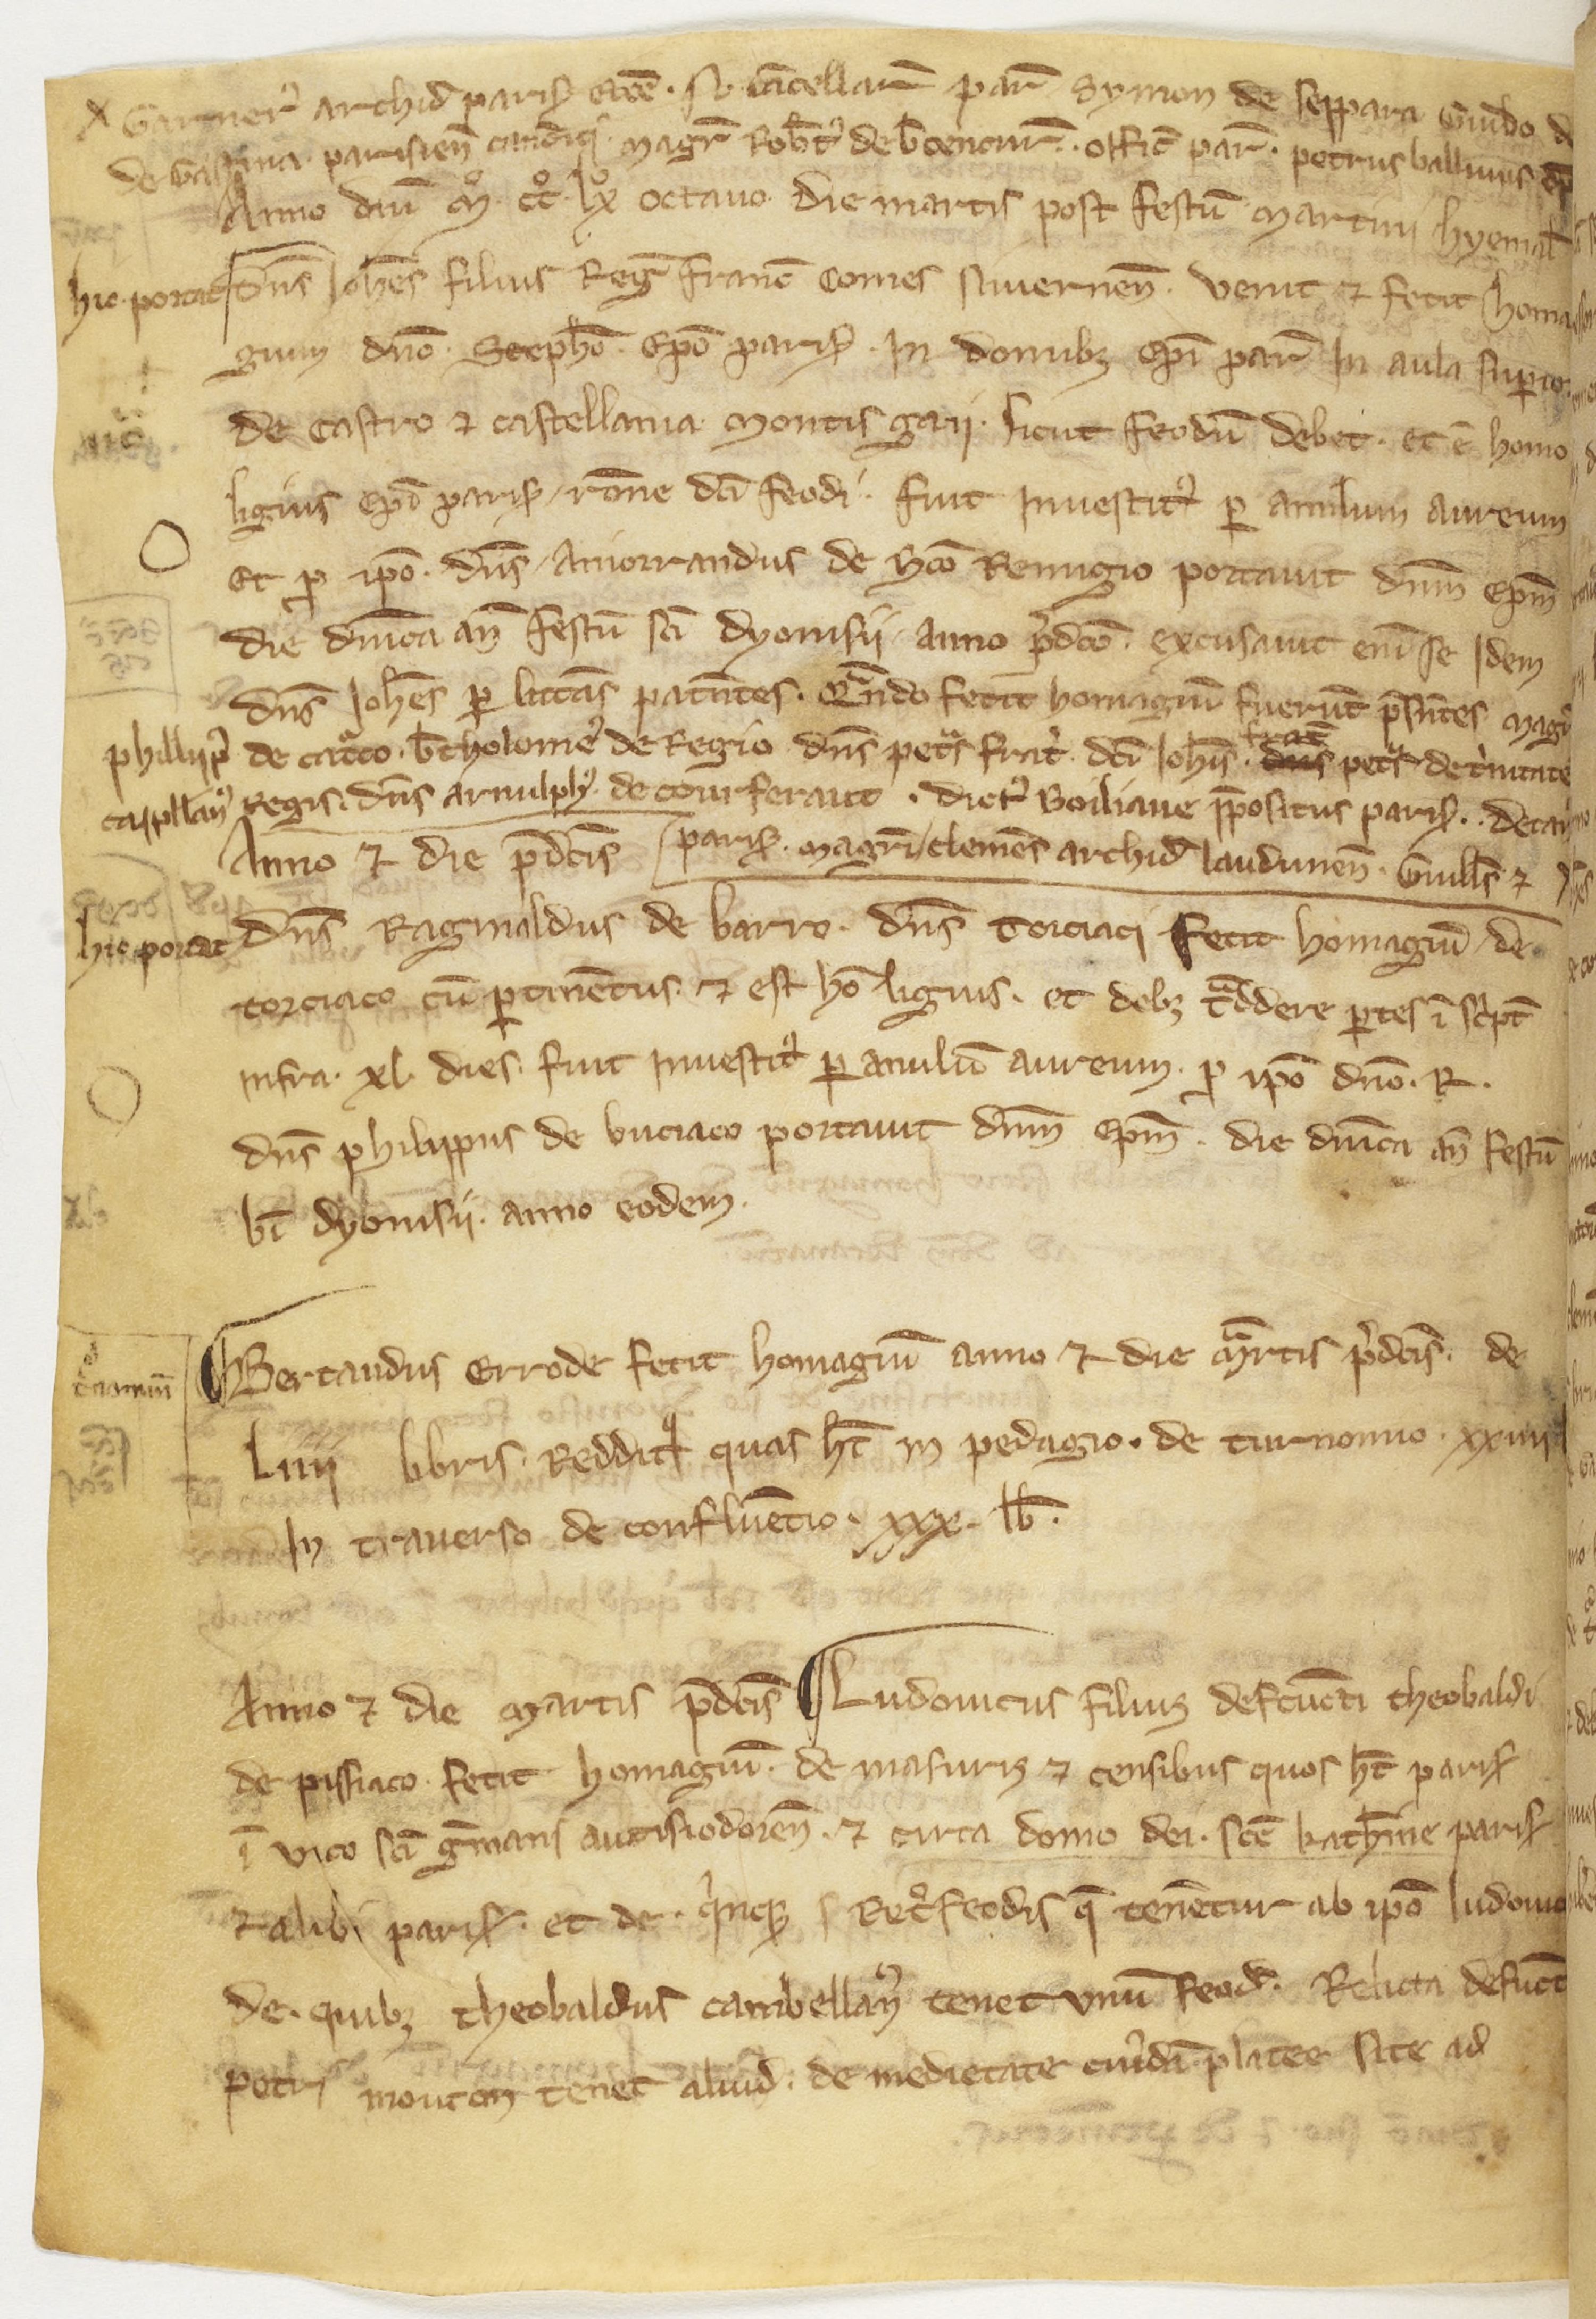 Garner᷒ archid paris̃ eccē. N. cācellari᷒ par̄ Symon de seppara Guido d
de Gastina parisien̄ canoiq̄ magr̄ Rob̄t᷒ de b̄cencuri᷒. offic̄ par̄. petrus balliuus ep̄
Anno dn̄i mͦ ccͦ lxͦ octauo die martis post festū martini hyemal̄
hic portat Dn̄s Joh̄es filius Reḡ franc̄ Comes Niuernen̄. venit ⁊ fecit homa
gium dn̄o Steph̄o Ep̄o paris̃. In domibꝫ Ep̄i par̄ In aula superio
de castro ⁊ castellania montis gaii. sicut feodū debet. et ē homo
ligius Ep̄i paris̃ rōne dc̄i feodi. fuit Inuestit᷒ ꝑ anulum aureum
Et ꝓ ip̄o. dn̄s Aniorrandus de sc̄o Remigio portauit dn̄m Ep̄m
die dn̄ica an̄ festū sc̄i dyonisii anno p̄dc̄o. excusauit enī se Idem
dn̄s Joh̄es ꝑ litt̄as patentes. Qn̄do fecit homagiū fuerūt p̄sentes mag̃r
phillipp᷒ de catͦco. b̄tholome᷒ de Regio dn̄s petᷓs frat̄ dc̄i Joh̄is. frat̄ dn̄s petᷓs de t̄nitate
capellan᷒ Regis. dn̄s arnulph᷒ de courferaut. dict᷒ Boiliaue p̄positus paris̃. decan
Anno ⁊ die p̄dc̄is paris̃. magr̄i clemēs archid̄ laudunen̄. Guill̄s ⁊
hic portat Dn̄s Raginaldus de barro. dn̄s Torciaci fecit homagiū de
torciaco cū ꝑtinētiis. ⁊ est hō ligius. et debꝫ tᷓdere ꝑtes ī sc̄ipt̄
infra. xl. dies. fuit Inuestit᷒ ꝑ anulū aureum. ꝓ ip̄o dn̄o. R.
dn̄s philippus de buciaco portauit dn̄m Ep̄m. die dn̄ica an̄ festū
bt̄i dyonisii. anno eodem.
Bertaudus Errode fecit homagiū anno ⁊ die mᷓrtis p̄dc̄is. de
Liiii libris Reddit᷒ quas h̄t in pedagio. de turnomio. xxiiii
In trauerso de confluētio. xxx. lb̄.
Anno ⁊ die martis p̄dc̄is Ludouicus filius defūcti theobaldi
de pissiaco fecit homagiū. de masuris ⁊ censibus quos h̄t paris̃
ī vico sc̄i ḡmani autisiodoren̄. ⁊ circa domo dei. sc̄e kath̄ine paris̃
⁊ alibi paris̃. et de. q̄nqꝫ Ret͛feodis q̄ tenētur ab ip̄o ludouico
de. quibꝫ theobaldus cambellan᷒ tenet vnū feod̄. Relicta defūct
petri mouton tenet aliud. de medietate cui᷒dā platee site ad